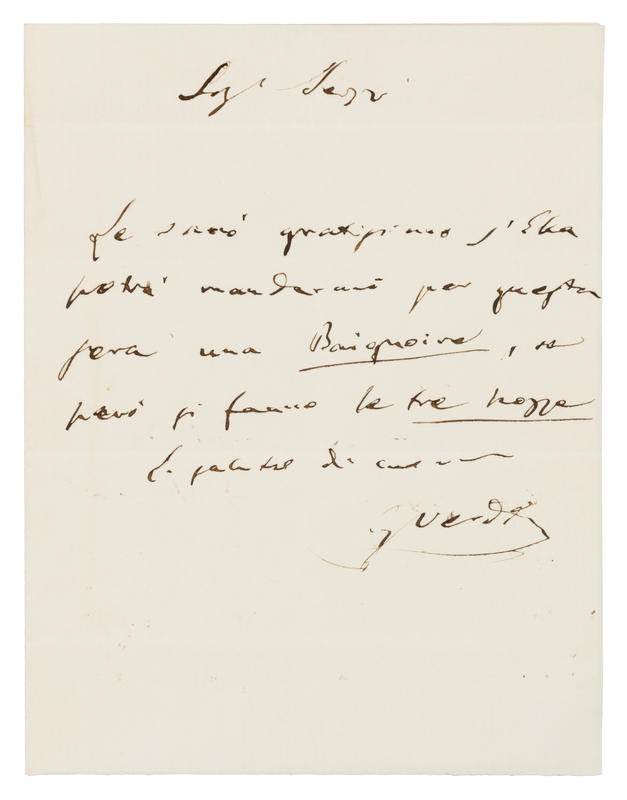 Sigr
Le sarò gratissimo s'Ella
potrà mandarmi per questa
sera una Baignoire, se
però si fanno le tre nozze
La saluto di cuore
GVerdi